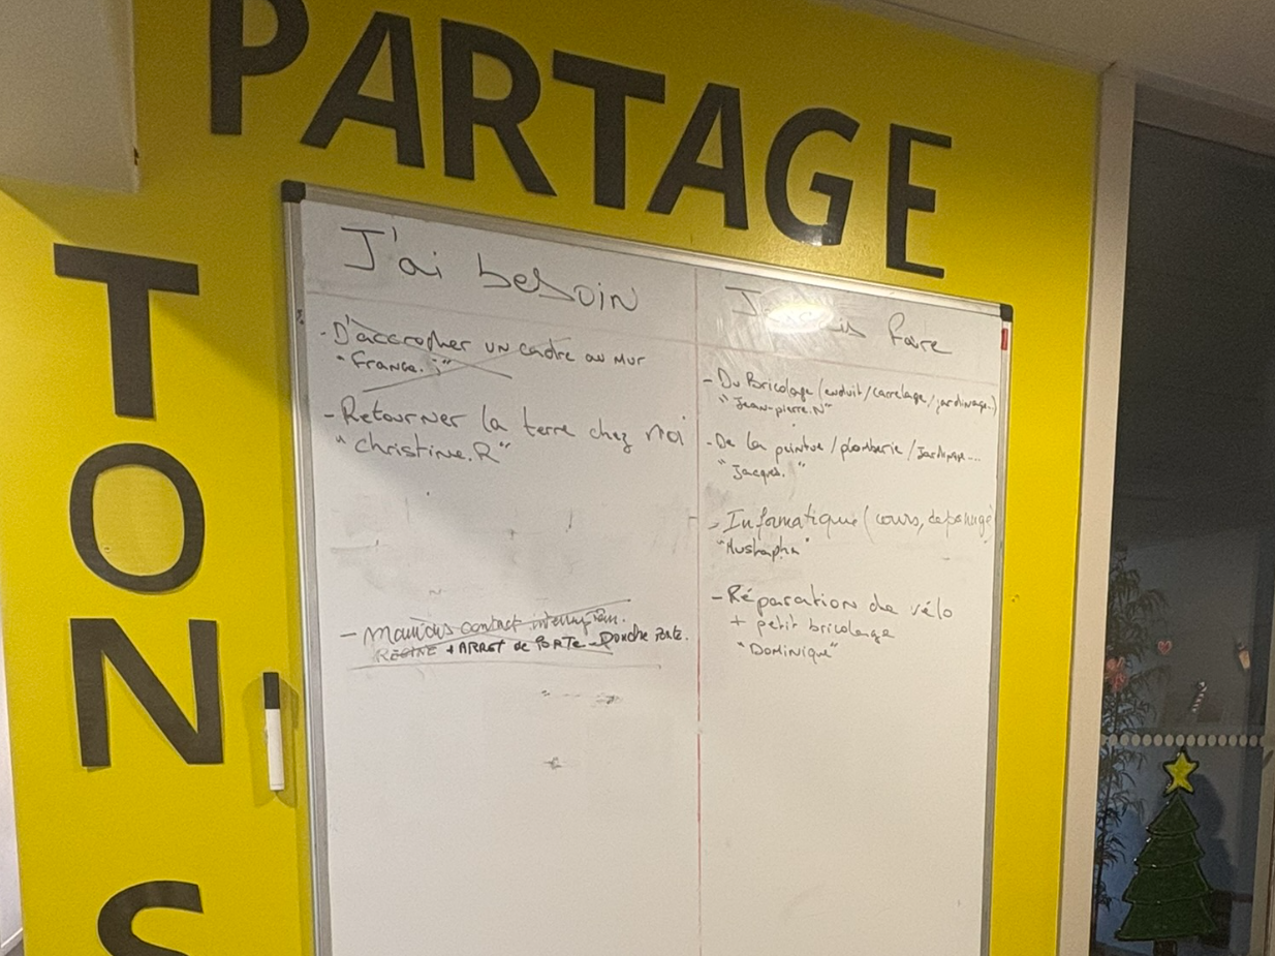 PARTAGE
TONS
J'ai besoin
- D'accrocher un cadre au mur
"France. j"
- Retourner la terre chez moi
"Christine.R"
- Mauvais contact interruption.
REGINE + ARRET de PORTE - Douche
Faire
- Du Bricolage (enduit/carrelage/jardinage.)
"Jean-pierre.N"
- De la peinture/plomberie/Jardinage...
"Jacques."
- Informatique (cours, depannage)
"Mustapha"
- Réparation de vélo
+ petit bricolage
"Dominique"